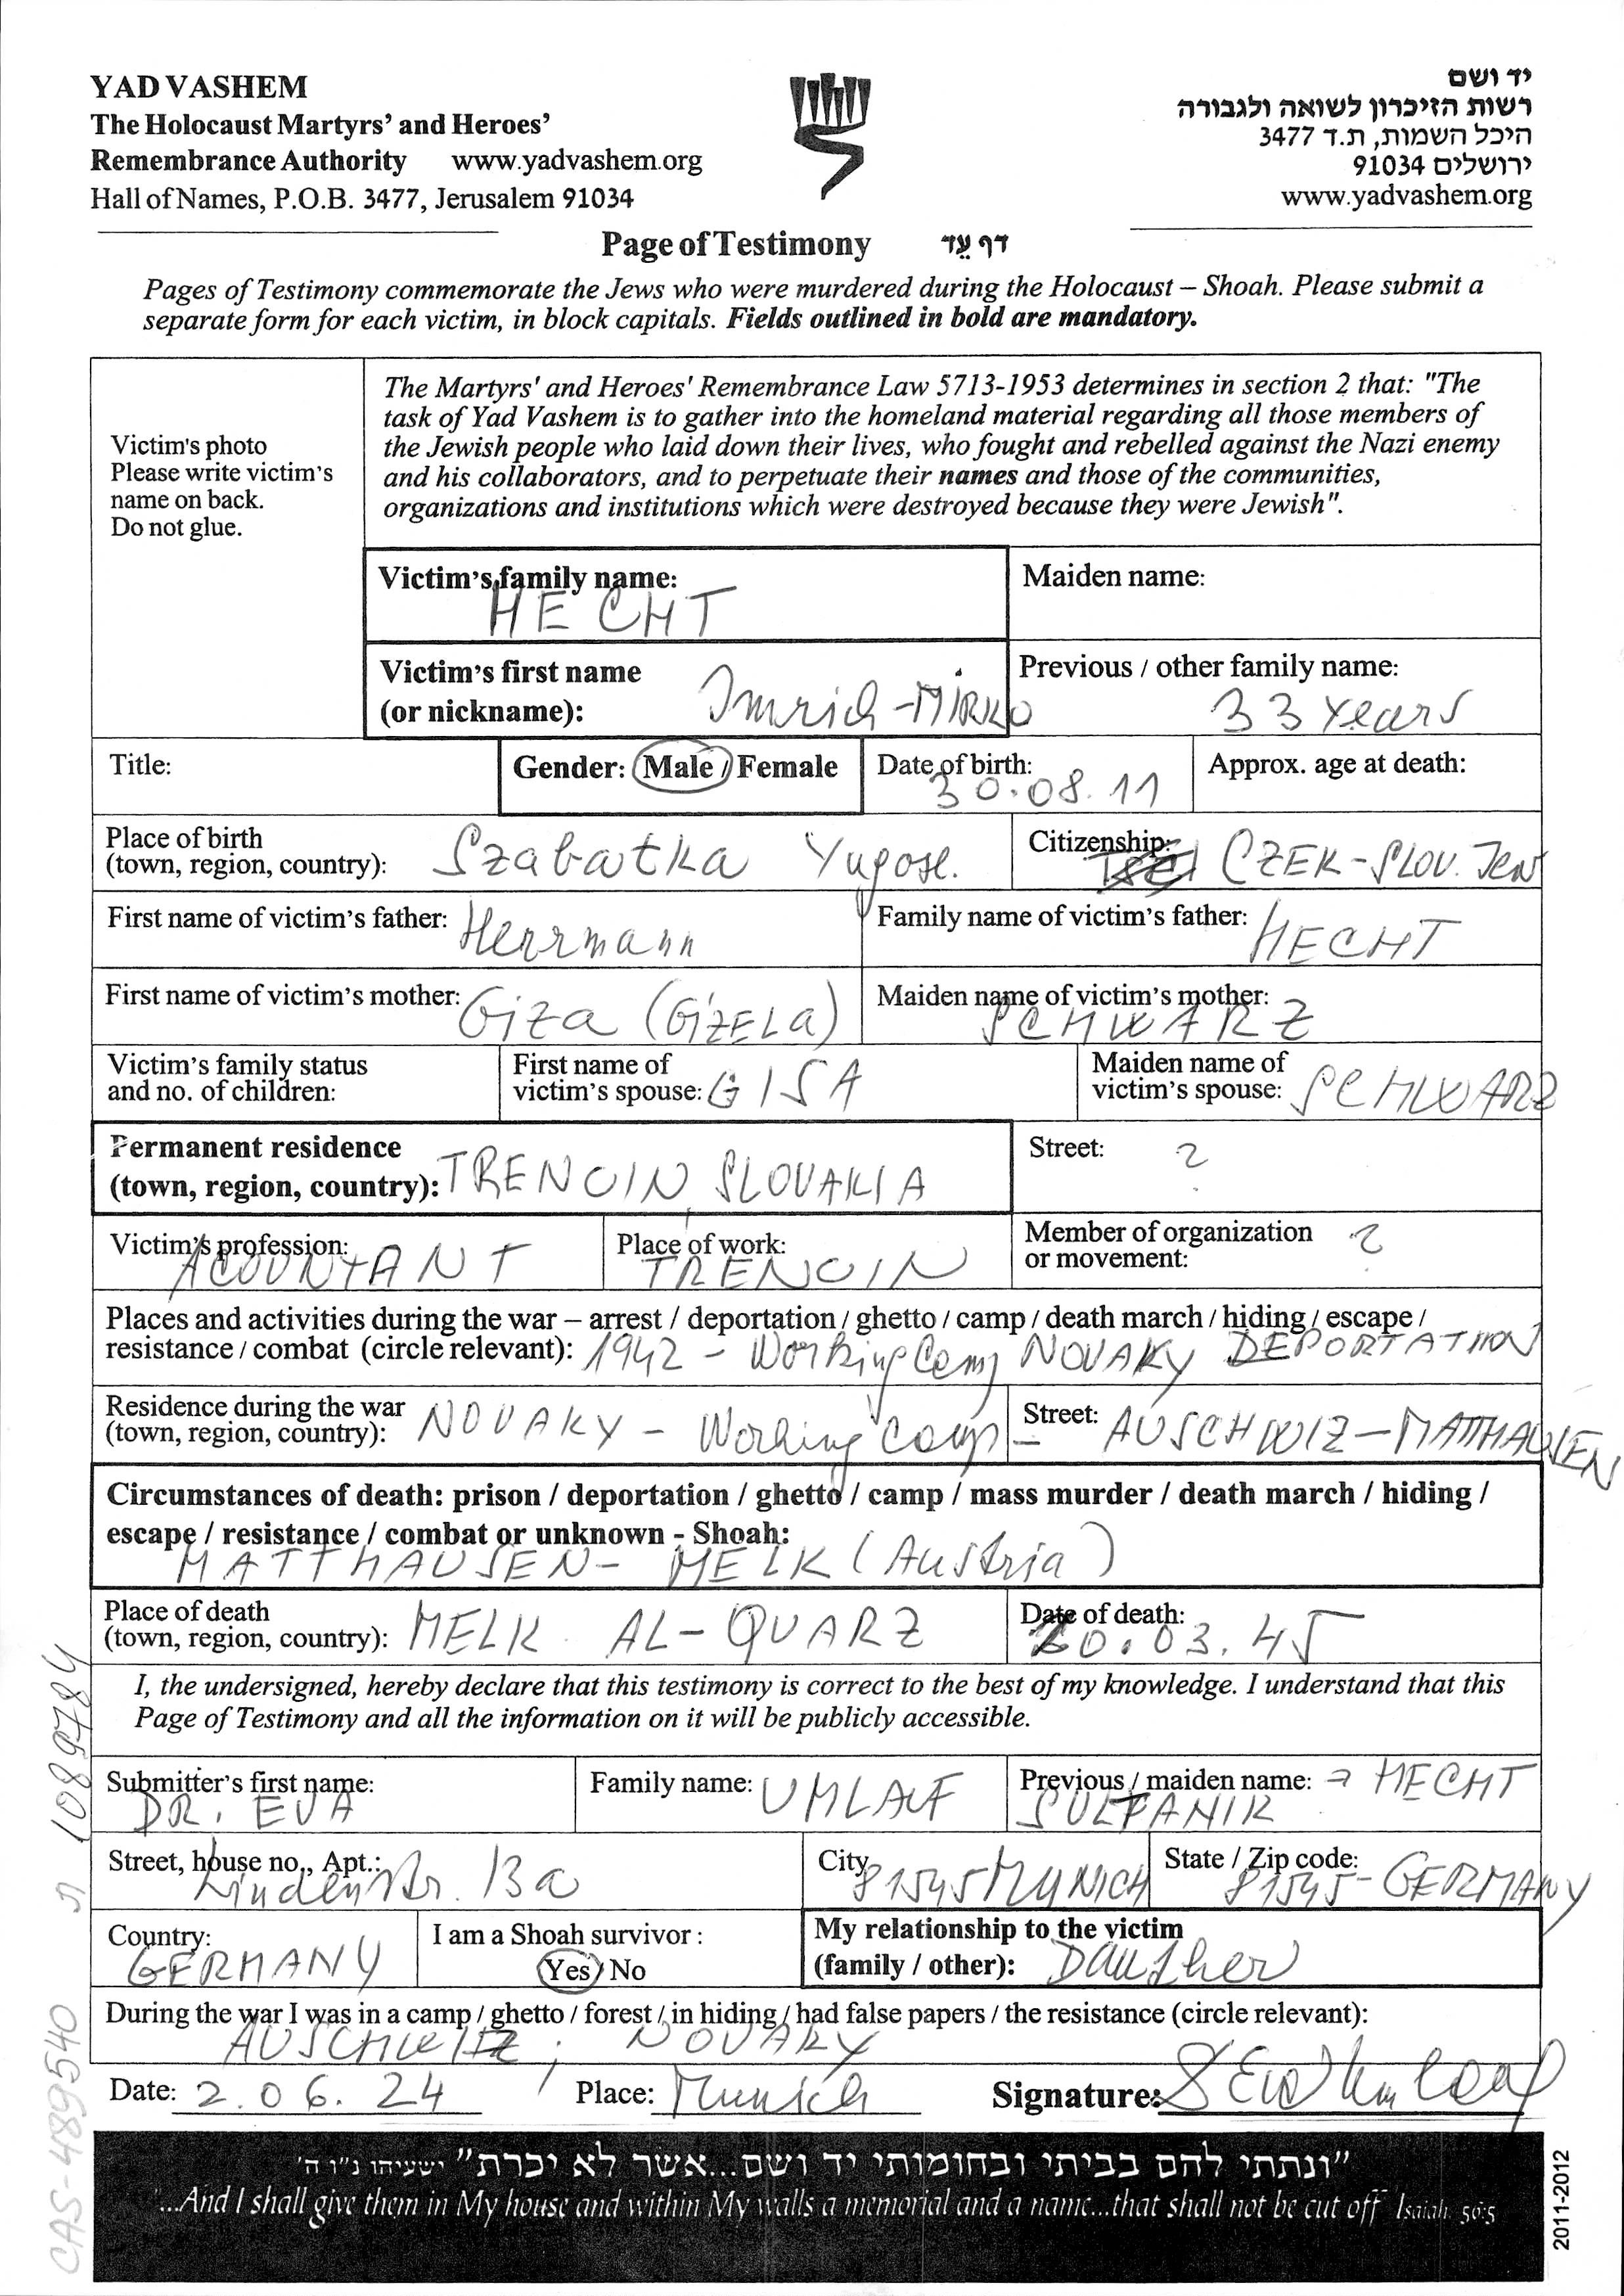 YAD VASHEM
The Holocaust Martyrs' and Heroes'
Remembrance Authority www.yadvashem.org
Hall of Names, P.O.B. 3477, Jerusalem 91034
יד ושם
רשות הזיכרון לשואה ולגבורה
היכל השמות, ת.ד 3477
ירושלים 91034
www.yadvashem.org
Page of Testimony דף עֵד
Pages of Testimony commemorate the Jews who were murdered during the Holocaust – Shoah. Please submit a
separate form for each victim, in block capitals. Fields outlined in bold are mandatory.
Victim's photo
Please write victim's
name on back.
Do not glue.
The Martyrs' and Heroes' Remembrance Law 5713-1953 determines in section 2 that: "The
task of Yad Vashem is to gather into the homeland material regarding all those members of
the Jewish people who laid down their lives, who fought and rebelled against the Nazi enemy
and his collaborators, and to perpetuate their names and those of the communities,
organizations and institutions which were destroyed because they were Jewish".
Victim's family name:
HECHT
Maiden name:
Victim's first name
(or nickname): Imrich-MIRKO
Previous / other family name:
33 Years
Title:
Gender: Male / Female
Date of birth:
30.08.11
Approx. age at death:
Place of birth
(town, region, country): Szabatka Yugosl.
Citizenship:
CZEK-SLOV.
First name of victim's father: Herrmann
Family name of victim's father: HECHT
First name of victim's mother: Giza (GIZELA)
Maiden name of victim's mother:
SCHWARZ
Victim's family status
and no. of children:
First name of
victim's spouse: GISA
Maiden name of
victim's spouse: SCHWARZ
Permanent residence
(town, region, country): TRENCIN, SLOVAKIA
Street: ?
Victim's profession:
ACOUNTANT
Place of work:
TRENCIN
Member of organization ?
or movement:
Places and activities during the war – arrest / deportation / ghetto / camp / death march / hiding / escape /
resistance / combat (circle relevant): 1942 - Working Camp NOVAKY DEPORTATION
Residence during the war
(town, region, country): NOVAKY - Working Camp -
Street: AUSCHWIZ-MATTHAUSEN
Circumstances of death: prison / deportation / ghetto / camp / mass murder / death march / hiding /
escape / resistance / combat or unknown - Shoah:
MATTHAUSEN- MELK (Austria)
Place of death
(town, region, country): MELK AL-QUARZ
Date of death:
20.03.45
I, the undersigned, hereby declare that this testimony is correct to the best of my knowledge. I understand that this
Page of Testimony and all the information on it will be publicly accessible.
Submitter's first name:
DR. EVA
Family name: UMLAUF
Previous / maiden name: HECHT
SULTANIK
Street, house no., Apt.:
Lindenstr. 13a
City
81545 MUNICH
State / Zip code:
81545-GERMANY
Country:
GERMANY
I am a Shoah survivor :
Yes / No
My relationship to the victim
(family / other): Daugther
During the war I was in a camp / ghetto / forest / in hiding / had false papers / the resistance (circle relevant):
AUSCHWITZ; NOVAKY
Date: 2.06.24 Place: Munich Signature:
"ונתתי להם בביתי ובחומותי יד ושם...אשר לא יכרת" ישעיהו נ"ו ה'
"...And I shall give them in My house and within My walls a memorial and a name...that shall not be cut off" Isaiah, 56:5
2011-2012
1089784
CAS-489540